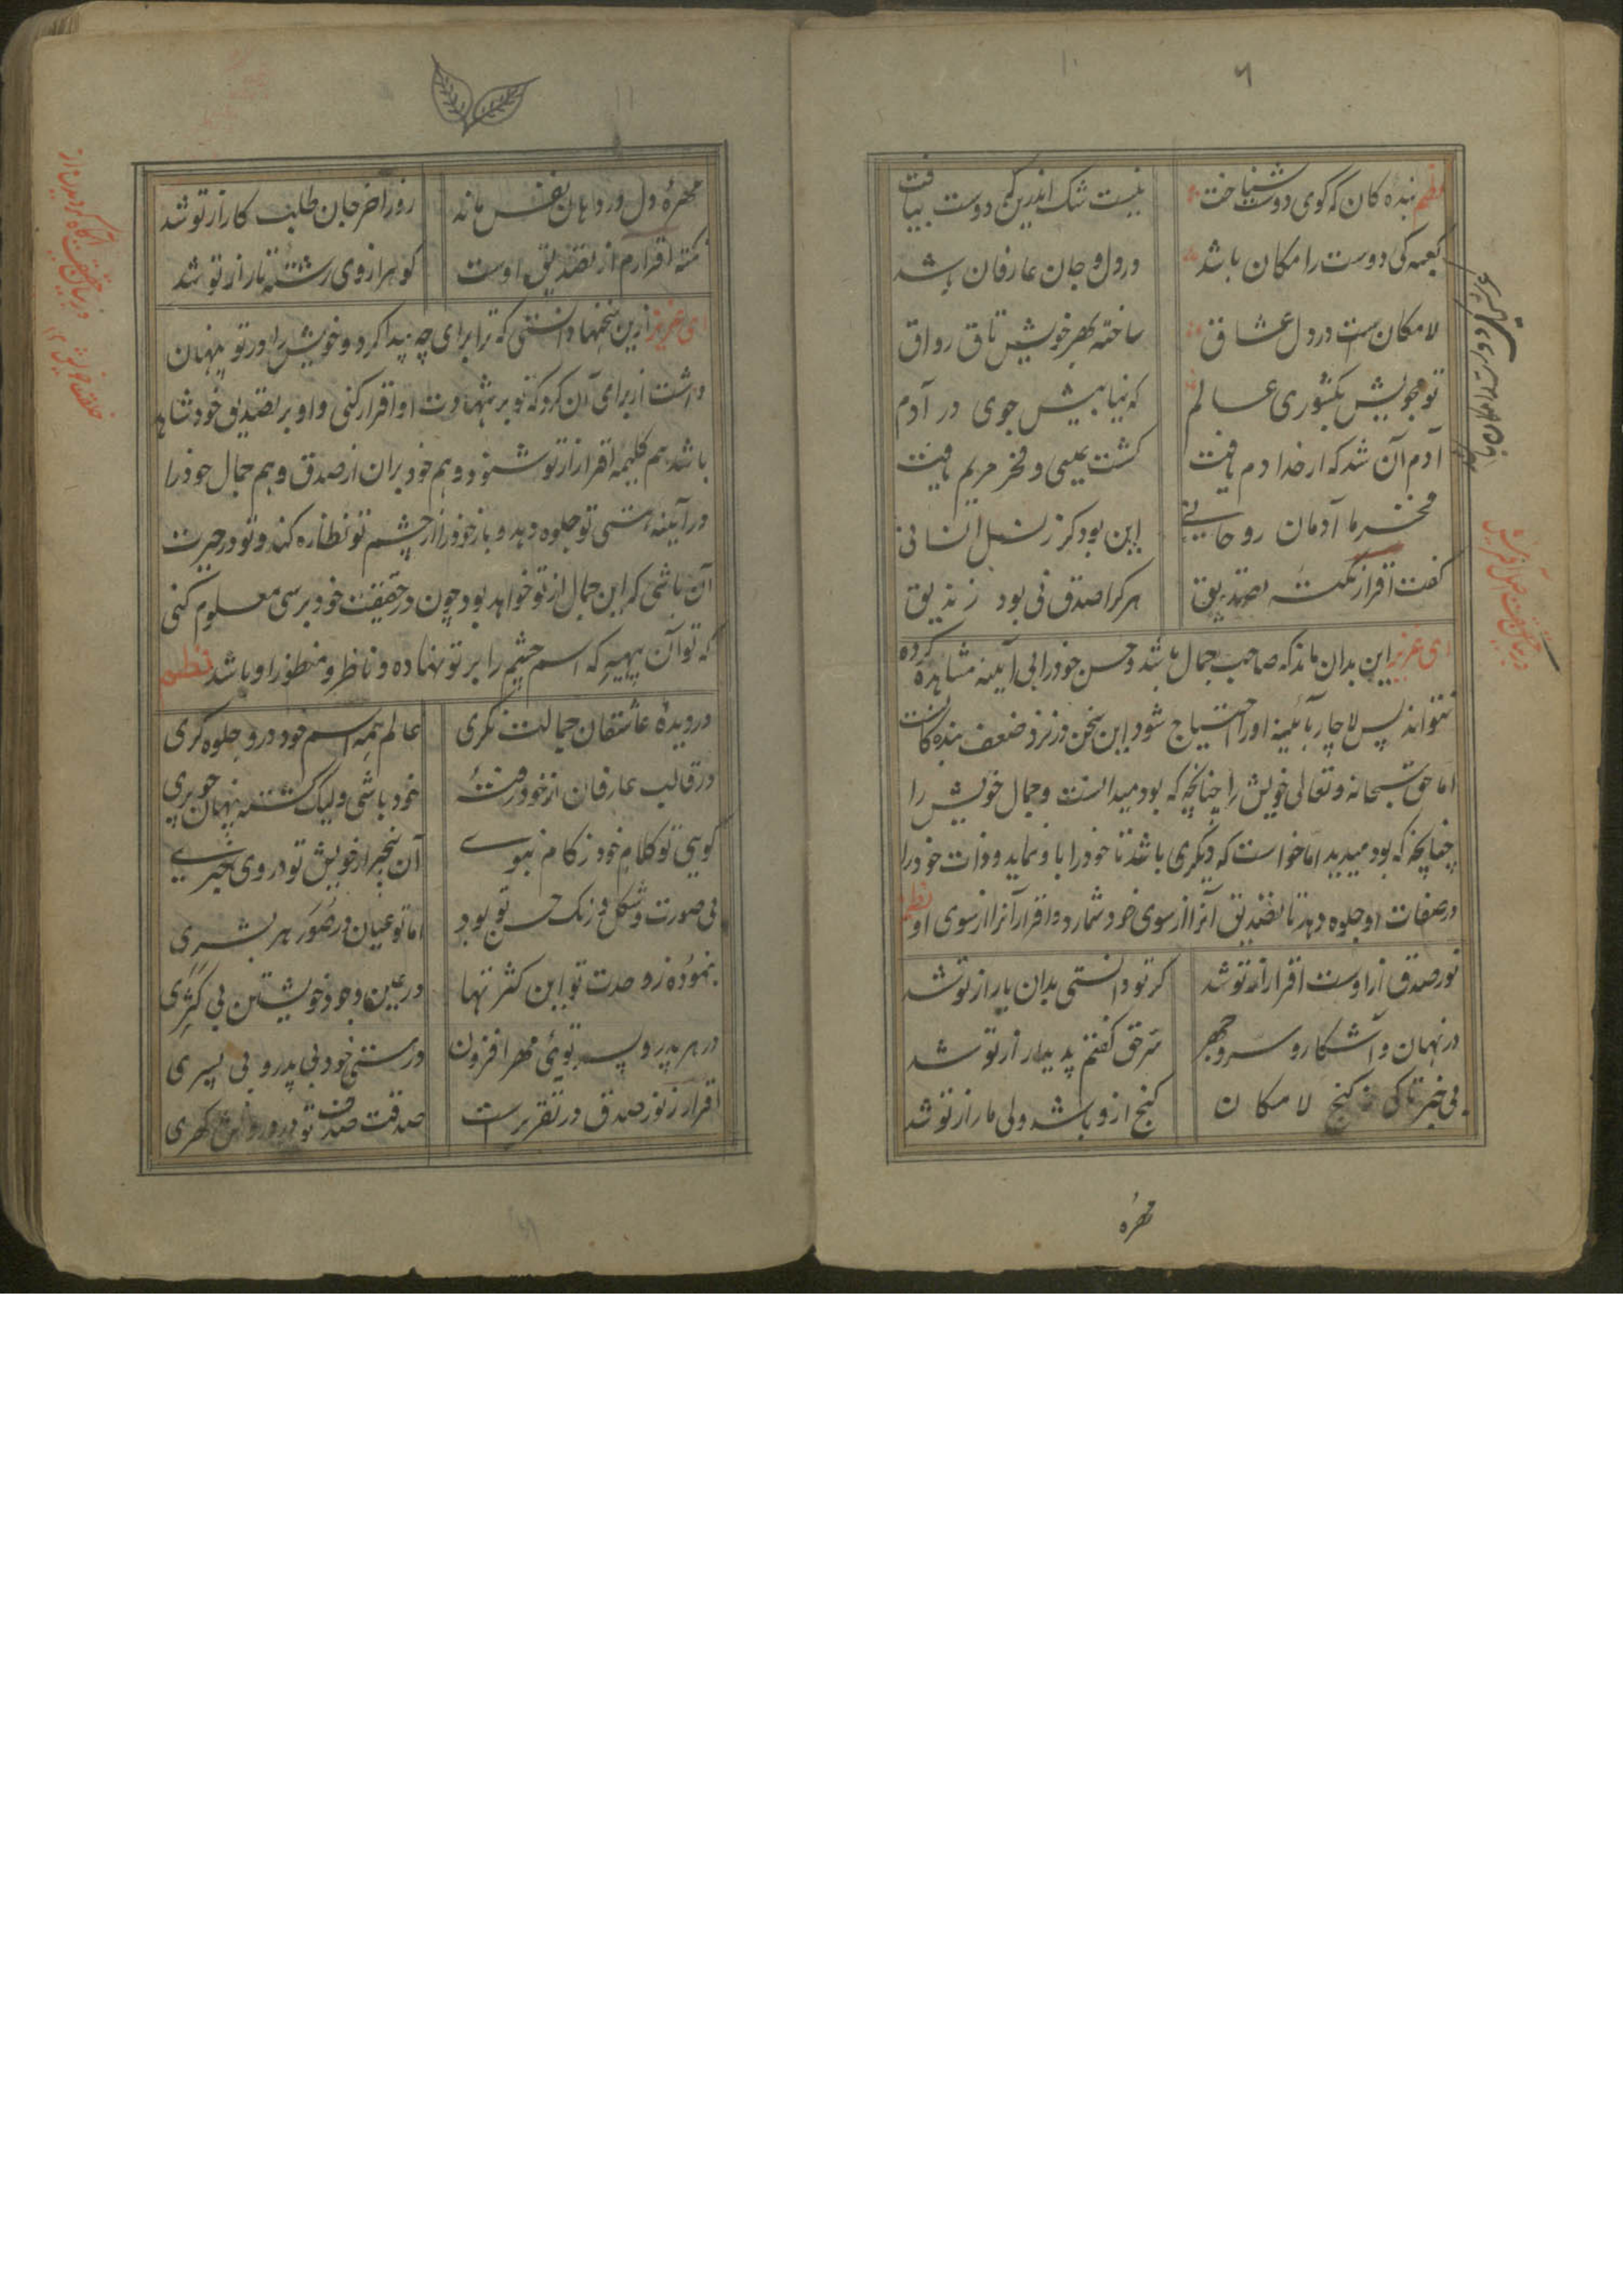 ۶
نظم بنده کان که کوی دوست شناخت نیست شک اندرین که دوست بیافت
کعبه کی دوست را مکان باشد در دل و جان عارفان باشد
لامکان ست در دل عشاق ساخته بهر خویش تاق رواق
تو مجویش بکشوری عالم که نیابیش جوی در آدم
آدم آن شد که از خدا دم یافت کشت عیسی و فخر مریم یافت
فخر ما آدمان روحانیے این بود کز نسل انسانی
کفت اقرار نکته تصدیق هر کرا صدق نی بود زندیق
ای عزیز این بدان ماند که صاحب جمال باشد و حسن خود را بی آیینه مشاهده کرده
نتواند پس لاچار بآئینه او را احتیاج شود این سخن در نزد ضعف بنده کانست
اما حق سبحانه و تعالی خویش را چنانچه که بود میدانست و جمال خویش را
چنانچه که بود میدید اما خواست که دیکری باشد تا خود را باو نماید و ذات خود را
در صفات او جلوه دهد تا تصدیق آنرا از سوی خود شمارد و اقرار آنرا از سوی او نظم
نور صدق از اوست اقرار از تو شد کر تو دانستی بدان یار از تو شد
در نهان و آشکار و سر و جهر سر حق کفتم پدیدار از تو شد
بی خبر تا کی ز کنج لامکان کنج ازو باشد ولی مار از تو شد
مهره
مهرهٔ دل در دهان نفس مانه روز آخر جان طلب کار از تو شد
نکته اقرارم از تصدیق اوست کوهر از وی رشته تار از تو شد
ای عزیز ازین سخنها دانستی که ترا برای چه پیدا کرد و خویش را در تو پنهان
داشت از برای آن کرد که تو بر شهادت او اقرار کنی و او بر تصدیق خود شاهد
باشد هم کلیمه اقرار از تو شنود و هم خود بر آن از صدق و هم جمال خود را
در آیینه هستی تو جلوه دهد و باز خود را از چشم تو نظاره کند و تو در حیرت
آن باشی که این جمال از تو خواهد بود چون در حقیقت خود برسی معلوم کنی
که تو آن پهیر که اسم چشم را بر تو نهاده و ناظر و منظور او باشد نظم
در دیدهٔ عاشقان جمالت نکری عالم همه اسم خود درو جلوه کری
در قالب عارفان از خود رفتهٔ خود باشی ولیک کشته پنهان چو پری
کویی تو کلام خود ز کام نبوے آن بیخبر از خویش تو در وی خبرے
بی صورت و شکل و رنک حسن تو بود اما تو عیان در صور هر بشری
بنموده ز وحدت تو این کثرتها در عین وجود خویشتن بی کثری
در هر پدر و پسر توئی مهر افزون در هستی خود بی پدر و بی پسری
اقرار ز نور صدق در تقریر است صدقت صدف تو در درونش کهری